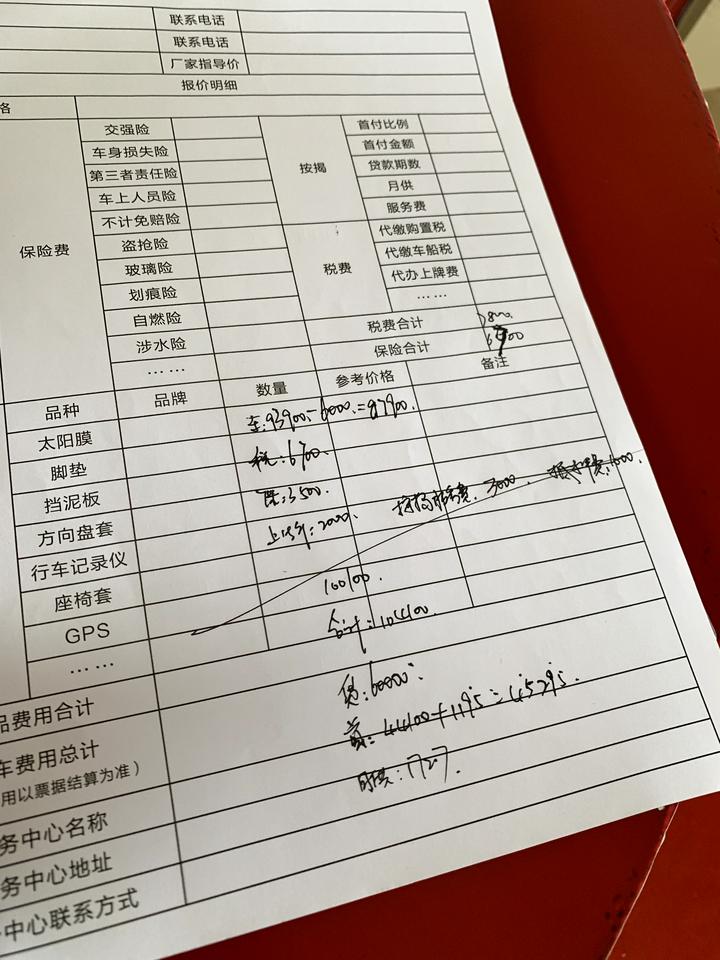 联系电话
联系电话
厂家指导价
报价明细
格
保险费 交强险 按揭 首付比例
车身损失险 首付金额
第三者责任险 贷款期数
车上人员险 月供
不计免赔险 服务费
盗抢险 税费 代缴购置税
玻璃险 代缴车船税
划痕险 代办上牌费
自燃险 ……
涉水险 税费合计
…… 保险合计
品种 品牌 数量 参考价格 备注
太阳膜 车:93900-6000=87900.
脚垫 税:6700.
挡泥板 3500.
方向盘套 2000 3000
行车记录仪
座椅套 100100.
GPS 合计:104100.
……
品费用合计 贷:60000
车费用总计 首:44100+1195=45295.
用以票据结算为准) 月供:1727.
务中心名称
务中心地址
中心联系方式